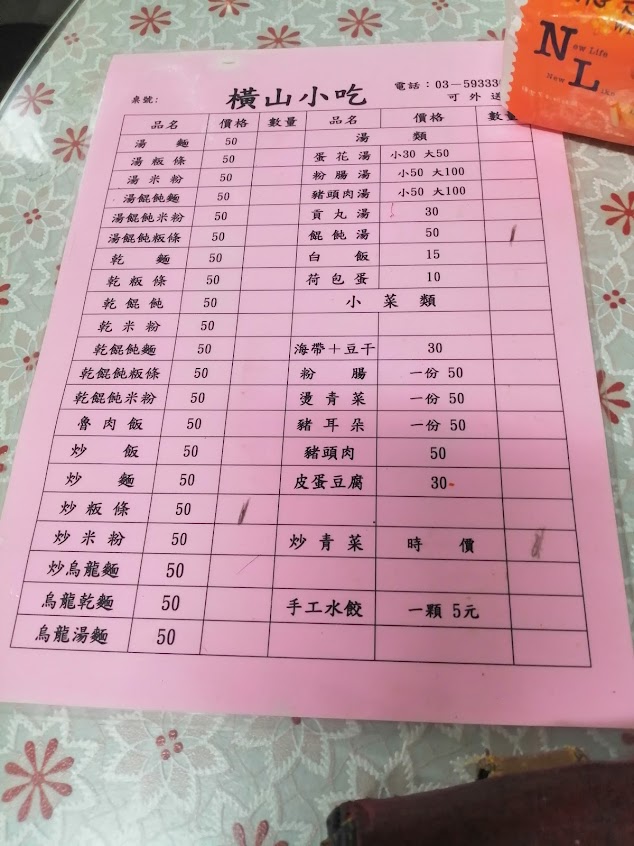 橫山小吃
電話：03－59333
桌號：
可外送
品名 價格 數量 品名 價格 數量
湯麵 50 湯類
湯粄條 50 蛋花湯 小30 大50
湯米粉 50 粉腸湯 小50 大100
湯餛飩麵 50 豬頭肉湯 小50 大100
湯餛飩米粉 50 貢丸湯 30
湯餛飩粄條 50 餛飩湯 50
乾麵 50 白飯 15
乾粄條 50 荷包蛋 10
乾餛飩 50 小菜類
乾米粉 50
乾餛飩麵 50 海帶＋豆干 30
乾餛飩粄條 50 粉腸 一份 50
乾餛飩米粉 50 燙青菜 一份 50
魯肉飯 50 豬耳朵 一份 50
炒飯 50 豬頭肉 50
炒麵 50 皮蛋豆腐 30
炒粄條 50
炒米粉 50 炒青菜 時價
炒烏龍麵 50
烏龍乾麵 50 手工水餃 一顆 5元
烏龍湯麵 50
New Life
New Like